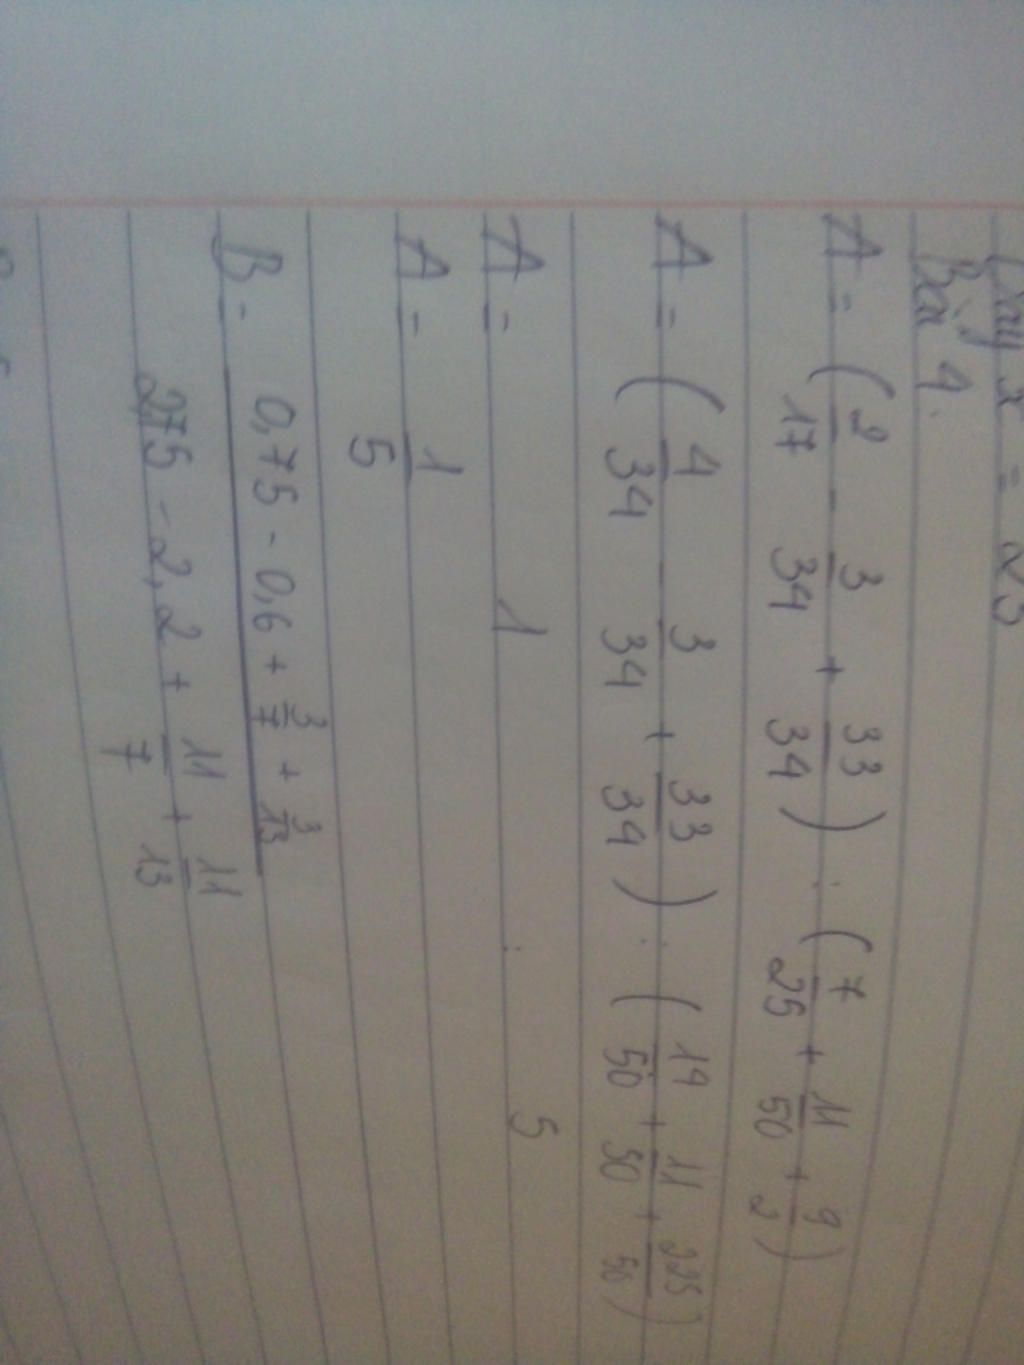 Vậy x = 25
Bài 4.
A = (2/17 - 3/34 + 33/34) : (7/25 + 11/50 + 9/2)
A = (4/34 - 3/34 + 33/34) : (14/50 + 11/50 + 225/50)
A = 1 : 5
A = 1/5
B = (0,75 - 0,6 + 3/7 + 3/13)/(2,75 - 2,2 + 11/7 + 11/13)